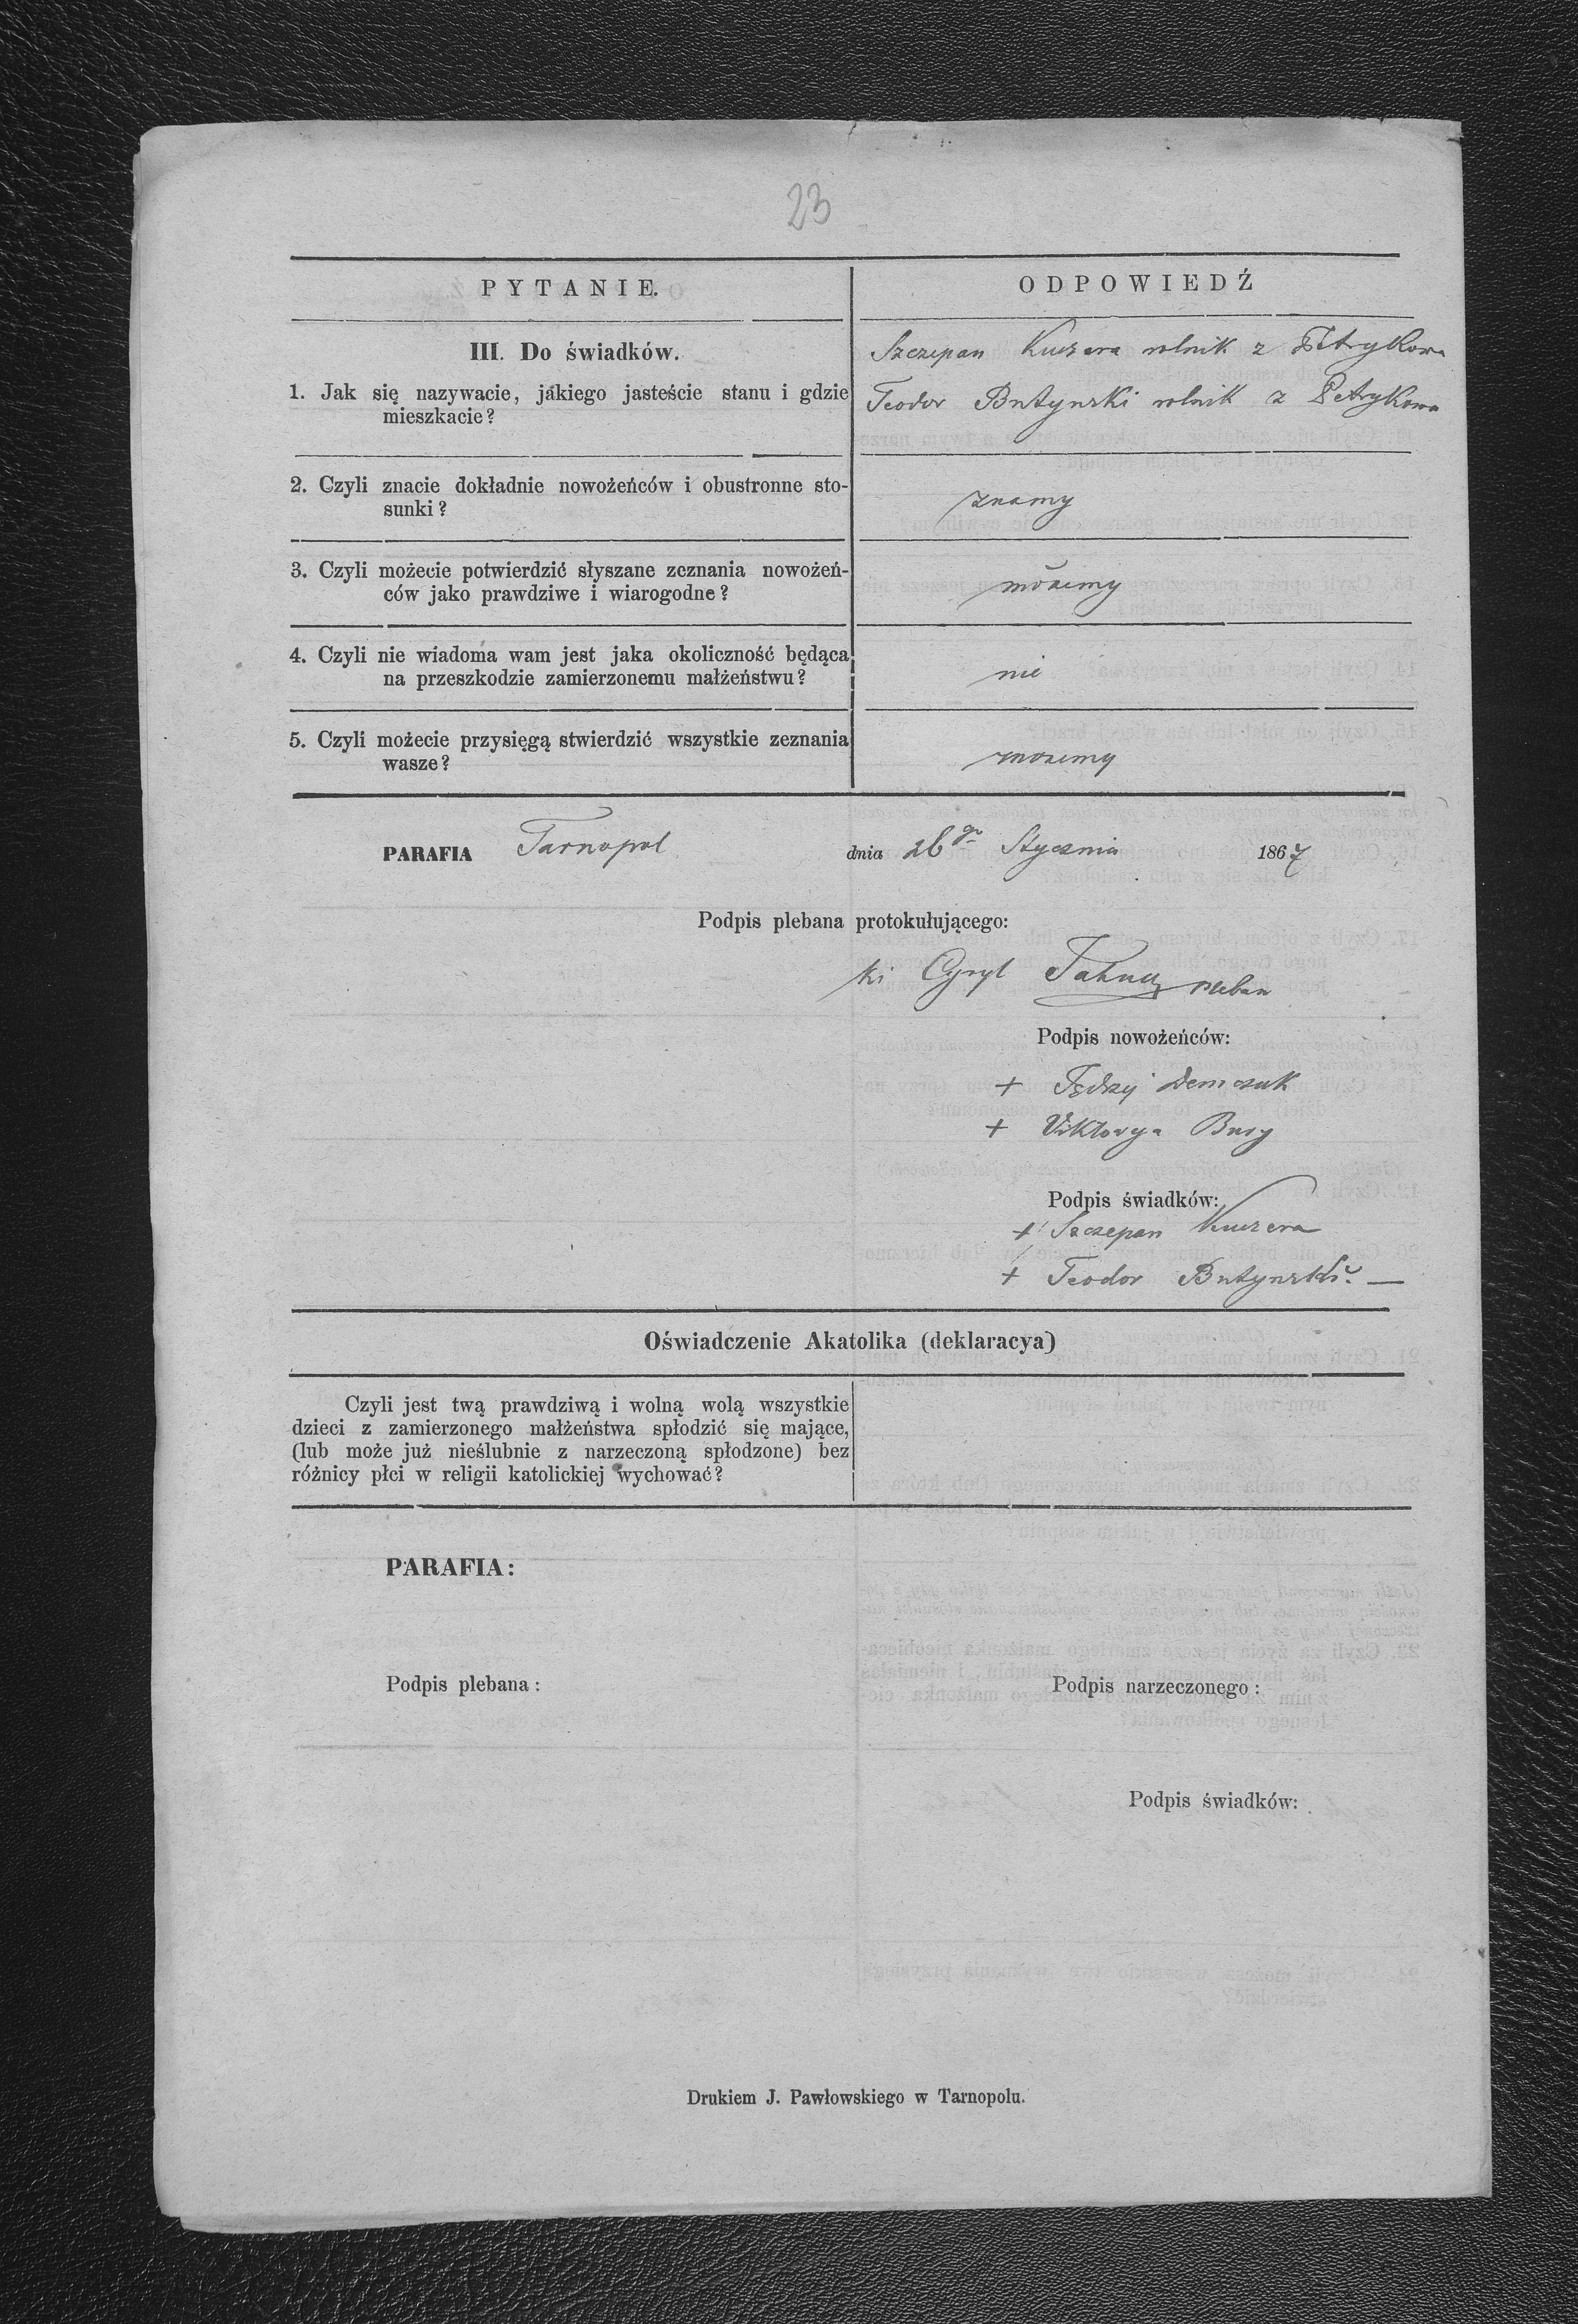 23
PYTANIE.
ODPOWIEDŹ
III. Do świadków.
1. Jak się nazywacie, jakiego jasteście stanu i gdzie
mieszkacie?
Szczepan Kuczera rolnik z Petrykowa
Teodor Butynski rolnik z Petrykowa
2. Czyli znacie dokładnie nowożeńców i obustronne sto-
sunki?
znamy
3. Czyli możecie potwierdzić słyszane zeznania nowożeń-
ców jako prawdziwe i wiarogodne?
możemy
4. Czyli nie wiadoma wam jest jaka okoliczność będąca
na przeszkodzie zamierzonemu małżeństwu?
nie
5. Czyli możecie przysięgą stwierdzić wszystkie zeznania
wasze?
mozemy
PARAFIA Tarnopol dnia 26go Stycznia 1867
Podpis plebana protokułującego:
Cyryl pleban
Podpis nowożeńców:
+ Demczuk
+ Viktorya Bury
Podpis świadków:
+ Szczepan Kuczera
+ Teodor Butynski —
Oświadczenie Akatolika (deklaracya)
Czyli jest twą prawdziwą i wolną wolą wszystkie
dzieci z zamierzonego małżeństwa spłodzić się mające,
(lub może już nieślubnie z narzeczoną spłodzone) bez
różnicy płci w religii katolickiej wychować?
PARAFIA:
Podpis plebana:
Podpis narzeczonego:
Podpis świadków:
Drukiem J. Pawłowskiego w Tarnopolu.